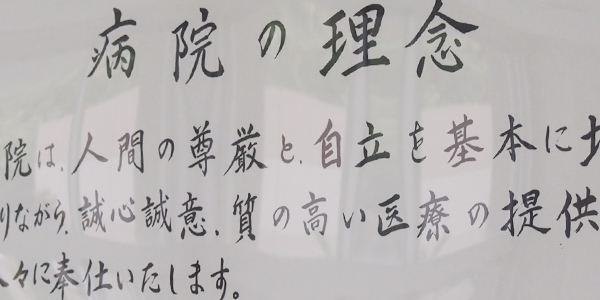 病院の理念
院は、人間の尊厳と、自立を基本に
りながら、誠心誠意、質の高い医療の提供
々に奉仕いたします。